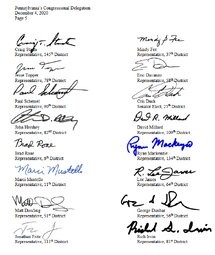 Pennsylvania's Congressional Delegation
December 4, 2020
Page 5
Craig Staats
Representative, 145th District
Mindy Fee
Representative, 37th District
Jesse Topper
Representative, 78th District
Eric Davanzo
Representative, 58th District
Paul Schemel
Representative, 90th District
Cris Dush
Senator-Elect, 25th District
John Hershey
Representative, 82nd District
David Millard
Representative, 109th District
Brad Roae
Representative, 6th District
Ryan Mackenzie
Representative, 134th District
Marci Mustello
Representative, 11th District
Lee James
Representative, 64th District
Matt Dowling
Representative, 51st District
George Dunbar
Representative, 56th District
Jonathan Fritz
Representative, 111th District
Rich Irvin
Representative, 81st District